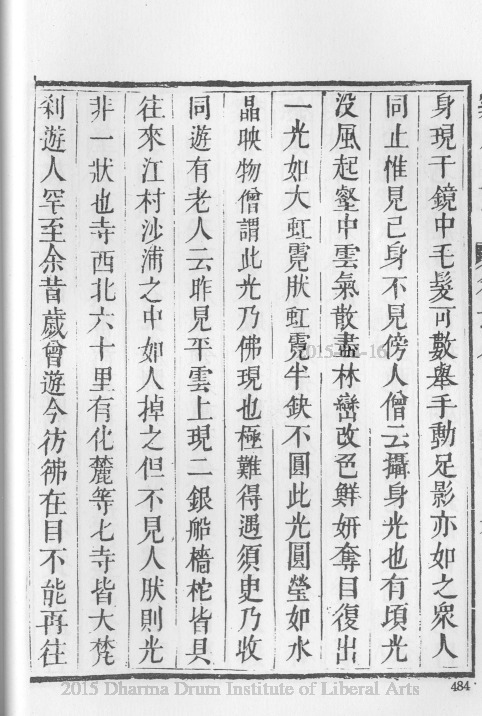 身現于鏡中毛髮可數舉手動足影亦如之衆人
同止惟見己身不見傍人僧云攝身光也有頃光
没風起壑中雲氣散盡林巒改色鮮妍奪目復出
一光如大虹霓肰虹霓半缺不圓此光圓瑩如水
晶映物僧謂此光乃佛現也極難得遇須臾乃收
同遊有老人云昨見平雲上現二銀船檣柁皆具
往來江村沙浦之中如人掉之但不見人肰則光
非一狀也寺西北六十里有化麓等七寺皆大梵
刹遊人罕至余昔歲曾遊今彷彿在目不能再往
484
2015 Dharma Drum Institute of Liberal Arts